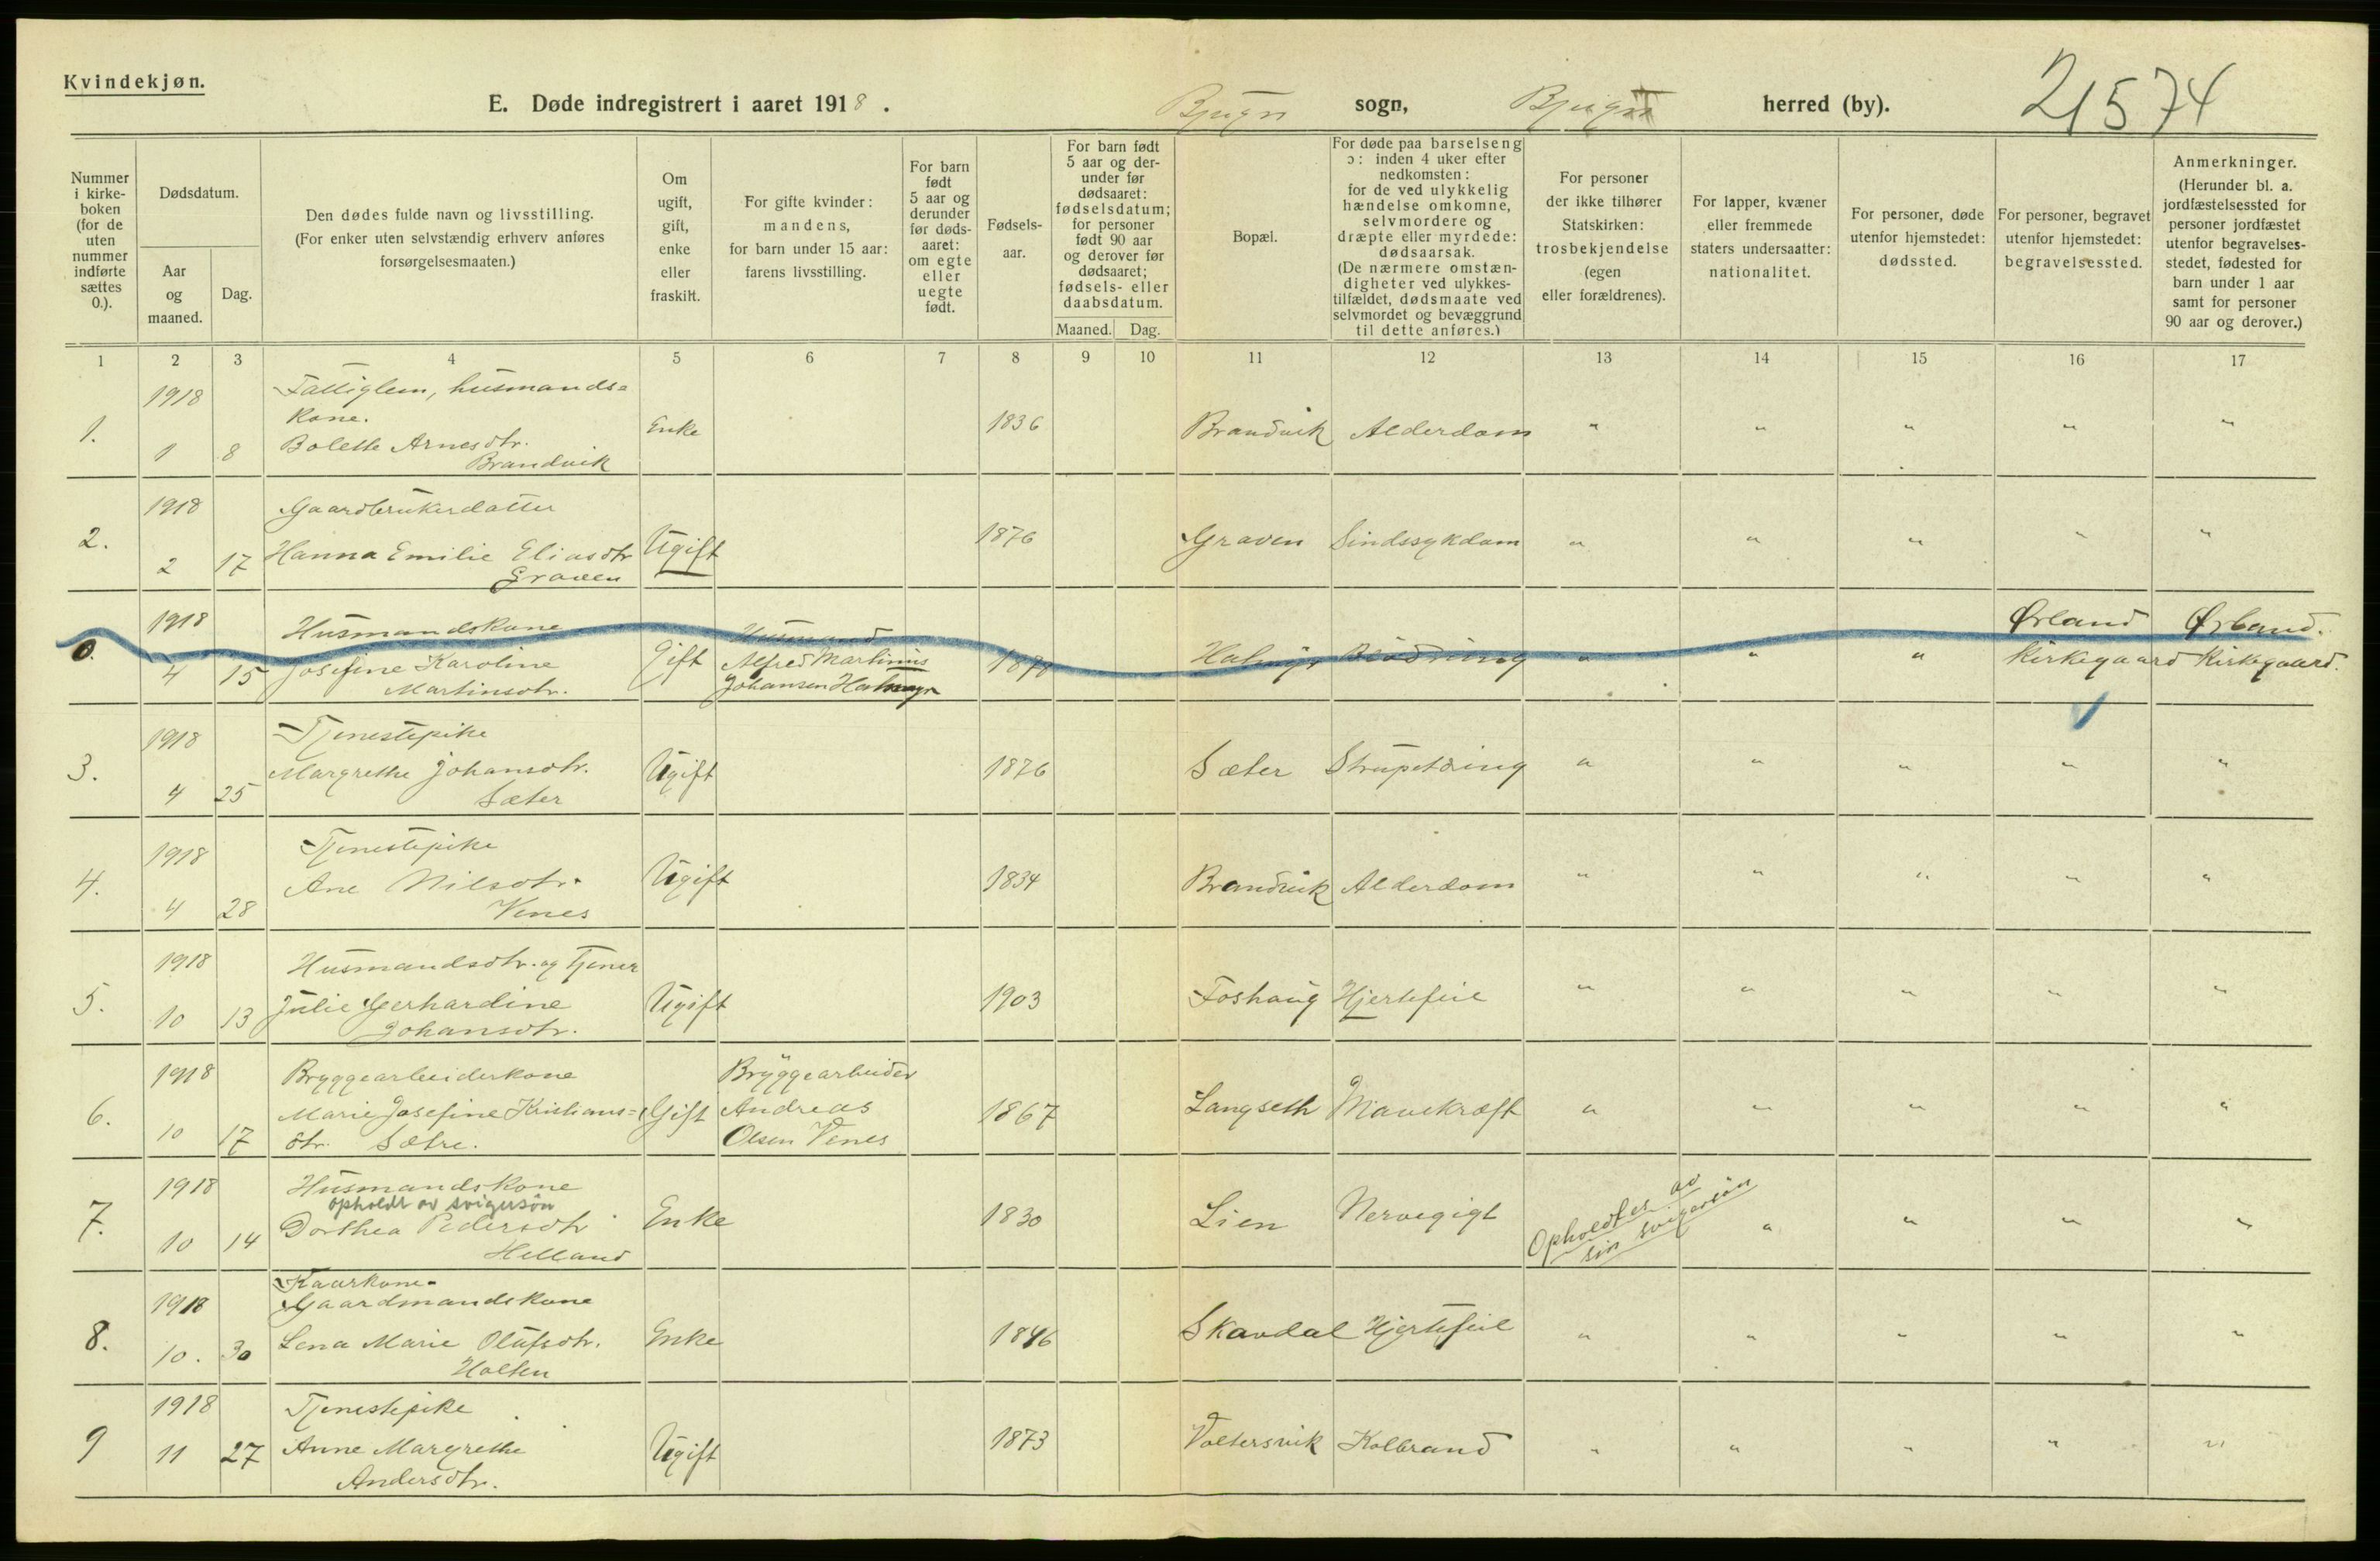 Kvindekjøn.
E. Døde indregistrert i aaret 1918. Bjugn sogn, Bjugn herred (by). 21574
Nummer i kirke- boken (for de uten nummer indførte sættes 0.).
Dødsdatum.
Aar og maaned.
Dag.
Den dødes fulde navn og livsstilling.
(For enker uten selvstændig erhverv anføres forsørgelsesmaaten.)
Om ugift, gift, enke eller fraskilt.
For gifte kvinder: mandens, for barn under 15 aar: farens livsstilling.
For barn født 5 aar og derunder før døds- aaret: om egte eller uegte født.
Fødsels- aar.
For barn født 5 aar og der- under før dødsaaret: fødselsdatum; for personer født 90 aar og derover før dødsaaret; fødsels- eller daabsdatum.
Maaned. Dag.
Bopæl.
For døde paa barselseng ɔ: inden 4 uker efter nedkomsten: for de ved ulykkelig hændelse omkomne, selvmordere og dræpte eller myrdede: dødsaarsak. (De nærmere omstæn- digheter ved ulykkes- tilfældet, dødsmaate ved selvmordet og bevæggrund til dette anføres.)
For personer der ikke tilhører Statskirken: trosbekjendelse (egen eller forældrenes).
For lapper, kvæner eller fremmede staters undersaatter: nationalitet.
For personer, døde utenfor hjemstedet: dødssted.
For personer, begravet utenfor hjemstedet: begravelsessted.
Anmerkninger. (Herunder bl. a. jordfæstelsessted for personer jordfæstet utenfor begravelses- stedet, fødested for barn under 1 aar samt for personer 90 aar og derover.)
1 2 3 4 5 6 7 8 9 10 11 12 13 14 15 16 17
1918 Fattiglem, husmands=
kone.
1. Enke 1836 Brandvik Alderdom " " " " "
1 8 Bolette Arnesdtr.
Brandvik
1918 Gaardbrukerdatter
2. 2 17 Hanna Emilie Eliasdtr Ugift 1876 Graven Sindssykdom " " " " "
Graven
1918 Husmandskone Husmand Ørland Ørland.
0. 4 15 Josefine Karoline Gift Alfred Martinus 1870 Halmyr Blødning " " " Kirkegaard Kirkegaard.
Martinsdtr. Johansen Halmyr
1918 Tjenestepike
3. Margrethe Johansdtr. Ugift 1876 Sæter Strupetæring " " " " "
4 25 Sæter
1918 Tjenestepike
4. Ane Nilsdtr. Ugift 1834 Brandvik Alderdom " " " " "
4 28 Venes
1918 Husmandsdtr. og Tjener
5. 10 13 Julie Gerhardine Ugift 1903 Foshaug Hjertefeil " " " " "
Johansdtr.
1918 Bryggearbeiderkone Bryggearbeider
6. Marie Josefine Kristians= Gift Andreas 1867 Langseth Mavekræft " " " " "
10 17 dtr. Sætre. Olsen Venes
1918 Husmandskone
opholdt av svigersøn
7. 10 14 Dorthea Pedersdtr Enke 1830 Lien Nervegigt Opholdtes av sin svigersøn " " " "
Helland
Kaarkone-
1918 Gaardmandskone
8. 10. 30 Lena Marie Olufsdtr. Enke 1846 Skavdal Hjertefeil " " " " "
Holten
1918 Tjenestepike
9 11 27 Anne Margrethe Ugift 1873 Valtersvik Kolbrand " " " " "
Andersdtr.